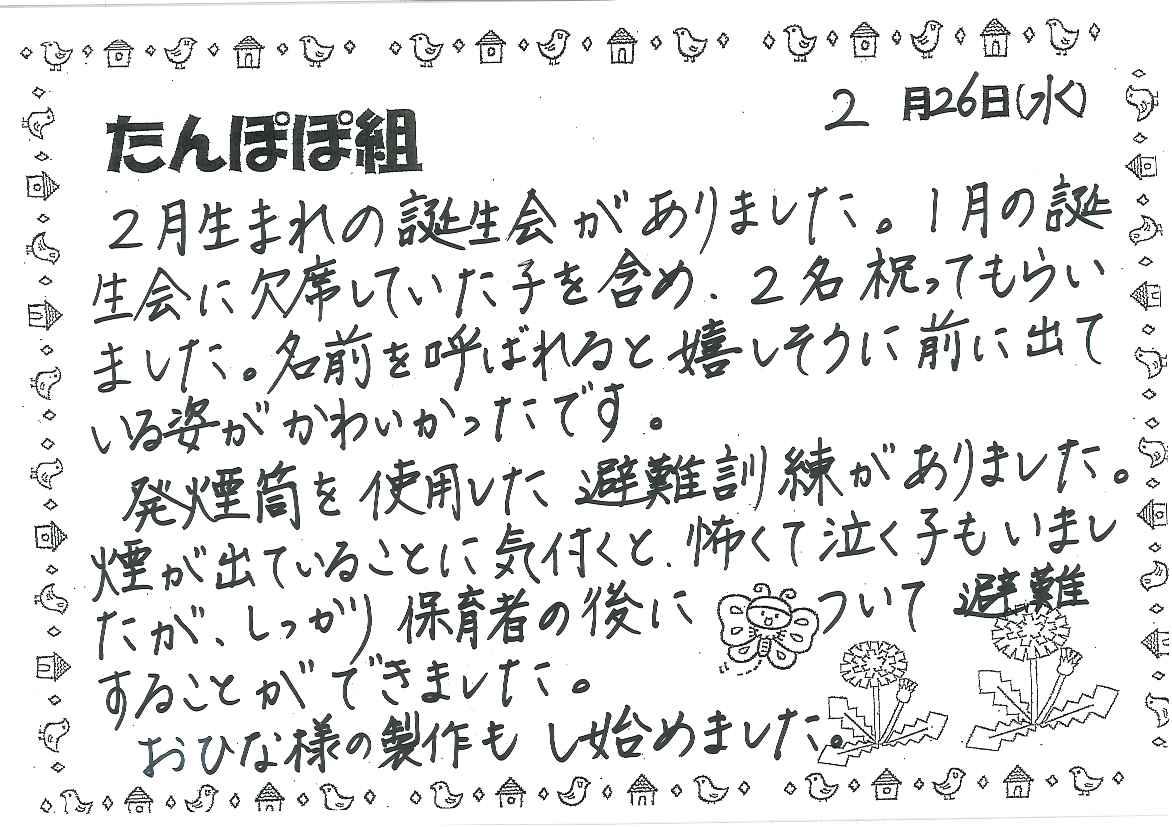 2月26日(水)
たんぽぽ組
2月生まれの誕生会がありました。1月の誕
生会に欠席していた子を含め、2名祝ってもらい
ました。名前を呼ばれると嬉しそうに前に出て
いる姿がかわいかったです。
発煙筒を使用した避難訓練がありました。
煙が出ていることに気付くと、怖くて泣く子もいまし
たが、しっかり保育者の後について避難
することができました。
おひな様の製作もし始めました。